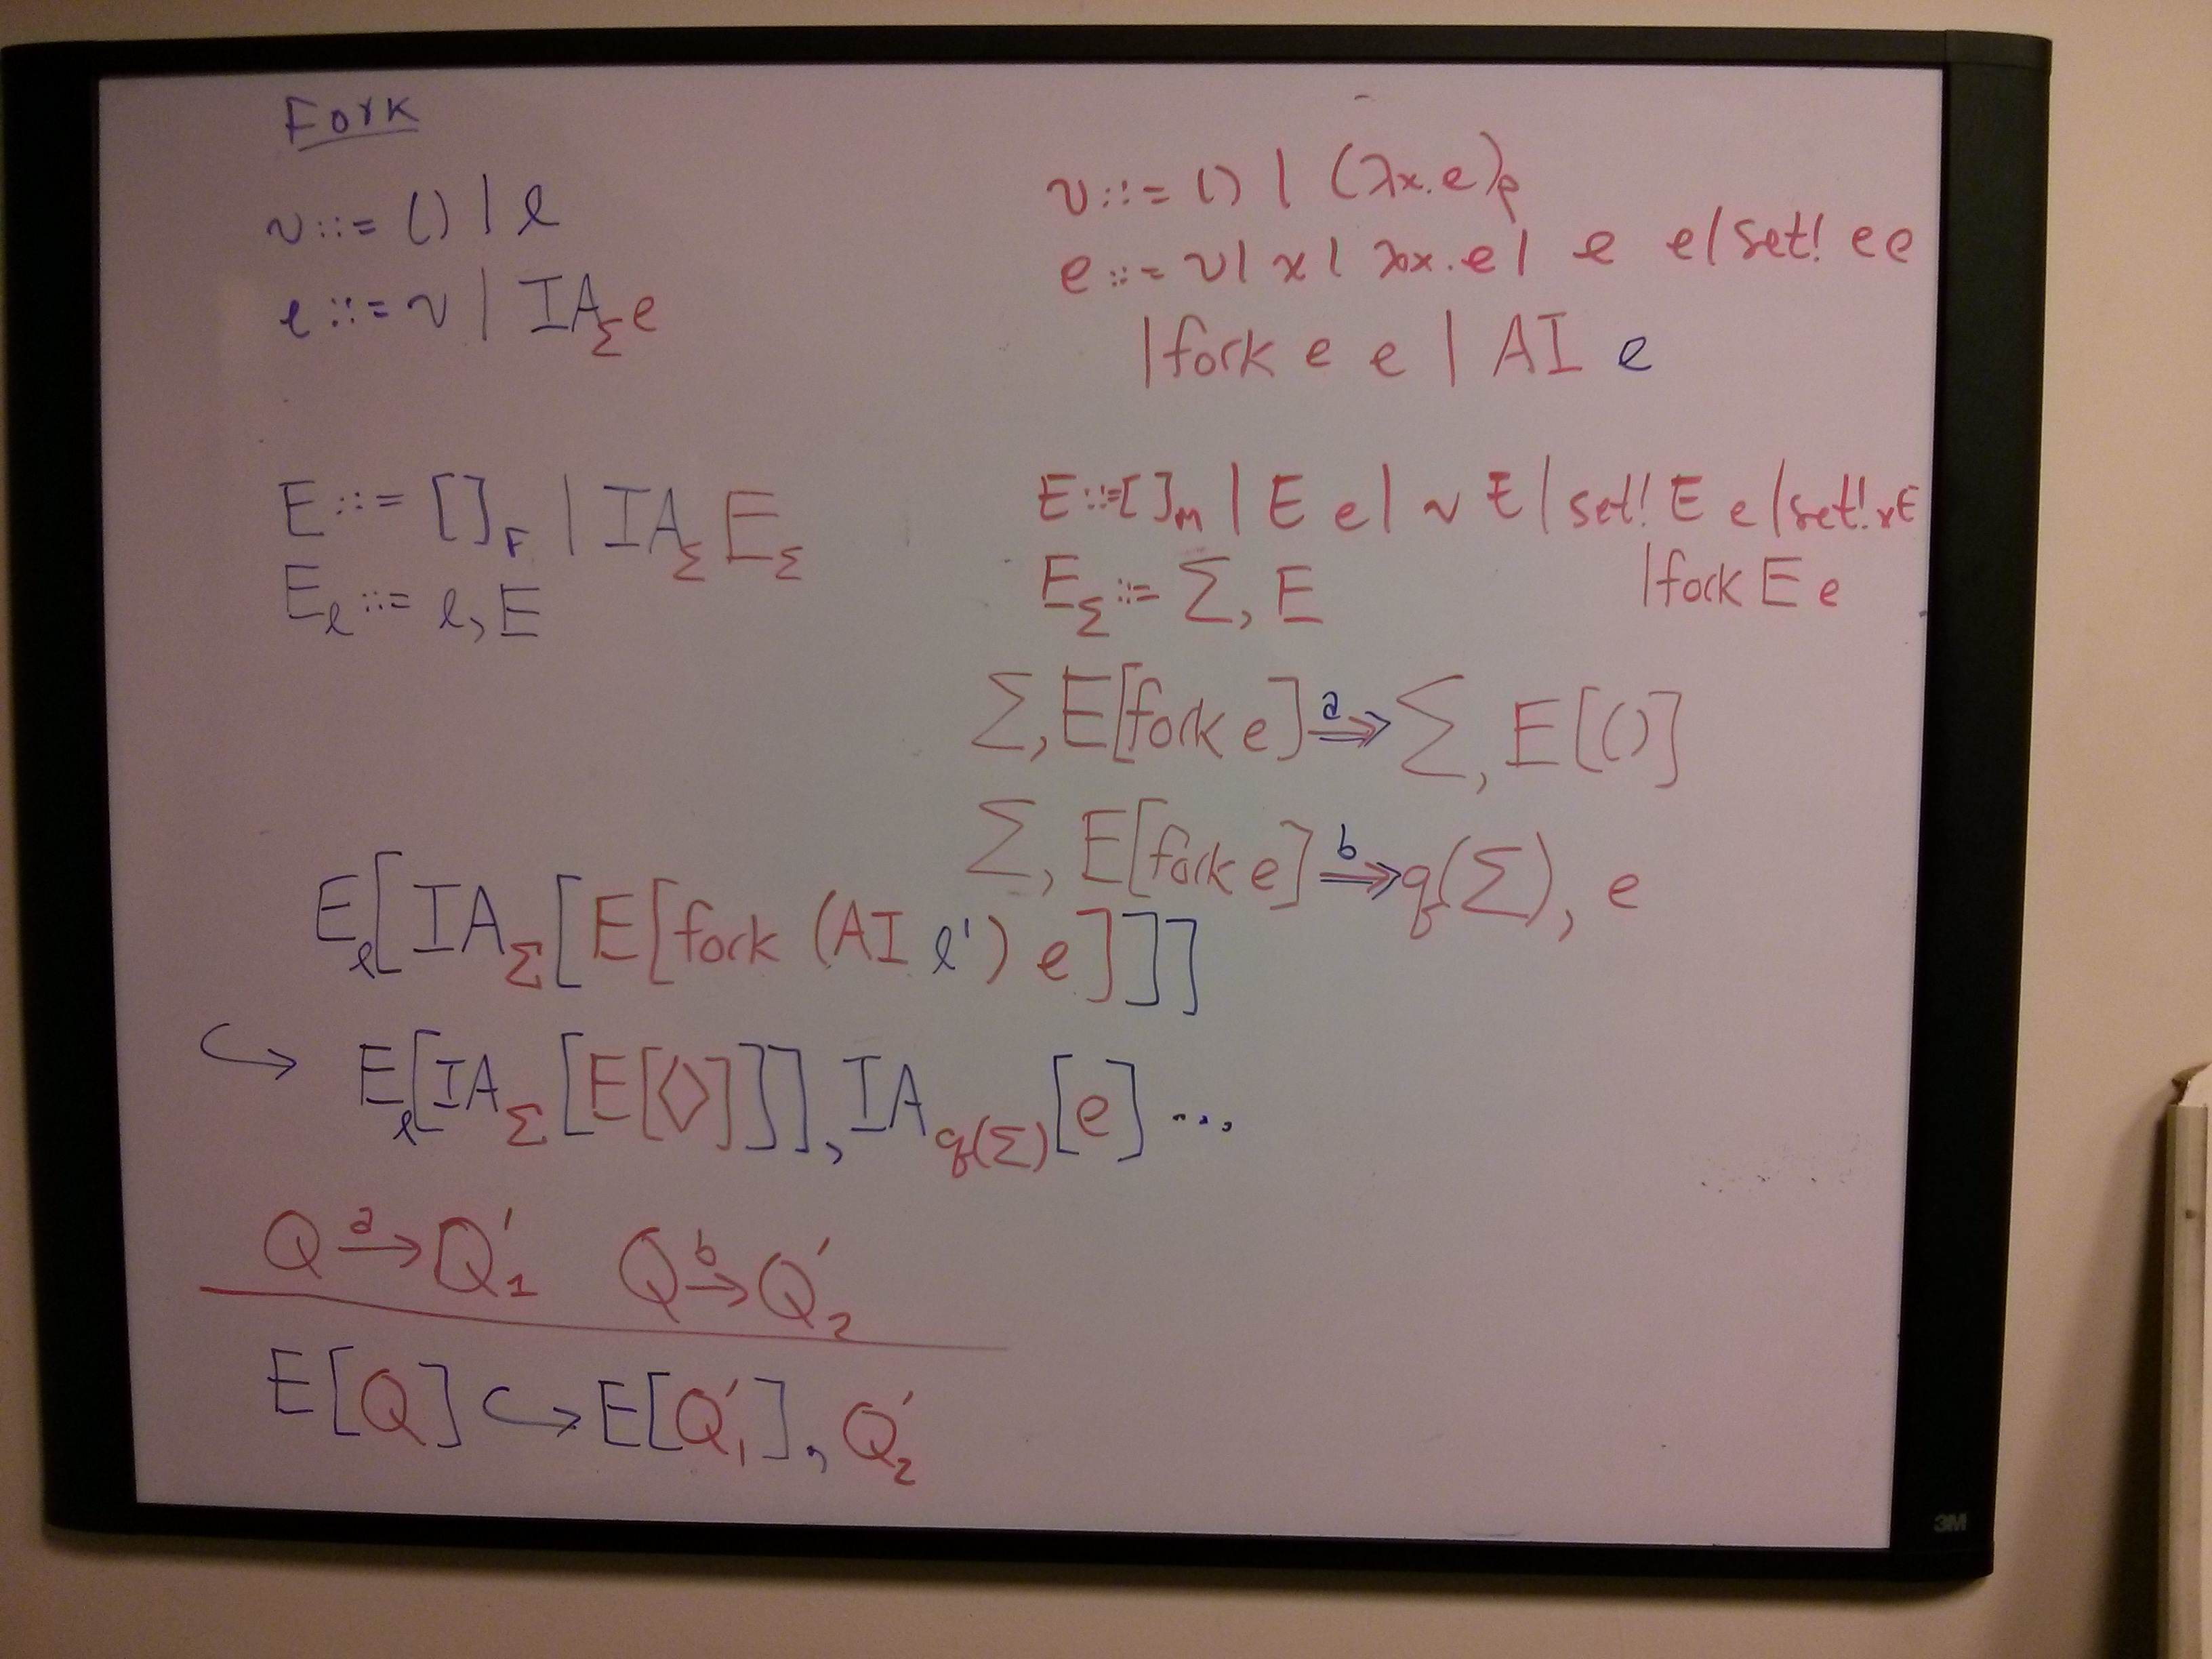 Fork
v ::= () | ℓ
e ::= v | IA_Σ e
E ::= []_F | IA_Σ E_Σ
E_ℓ ::= ℓ, E
v ::= () | (λx.e)_ρ
e ::= v | x | λx.e | e e | set! e e
| fork e e | AI e
E ::= []_m | E e | v E | set! E e | set! v E
| fork E e
E_Σ ::= Σ, E
Σ, E[fork e] =a=> Σ, E[()]
Σ, E[fork e] =b=> q(Σ), e
E_ℓ[IA_Σ[E[fork (AI ℓ') e]]]
↪ E_ℓ[IA_Σ[E[<>]]], IA_q(Σ)[e] ...,
Q -a-> Q'_1 Q -b-> Q'_2
E[Q] ↪ E[Q'_1], Q'_2
3M